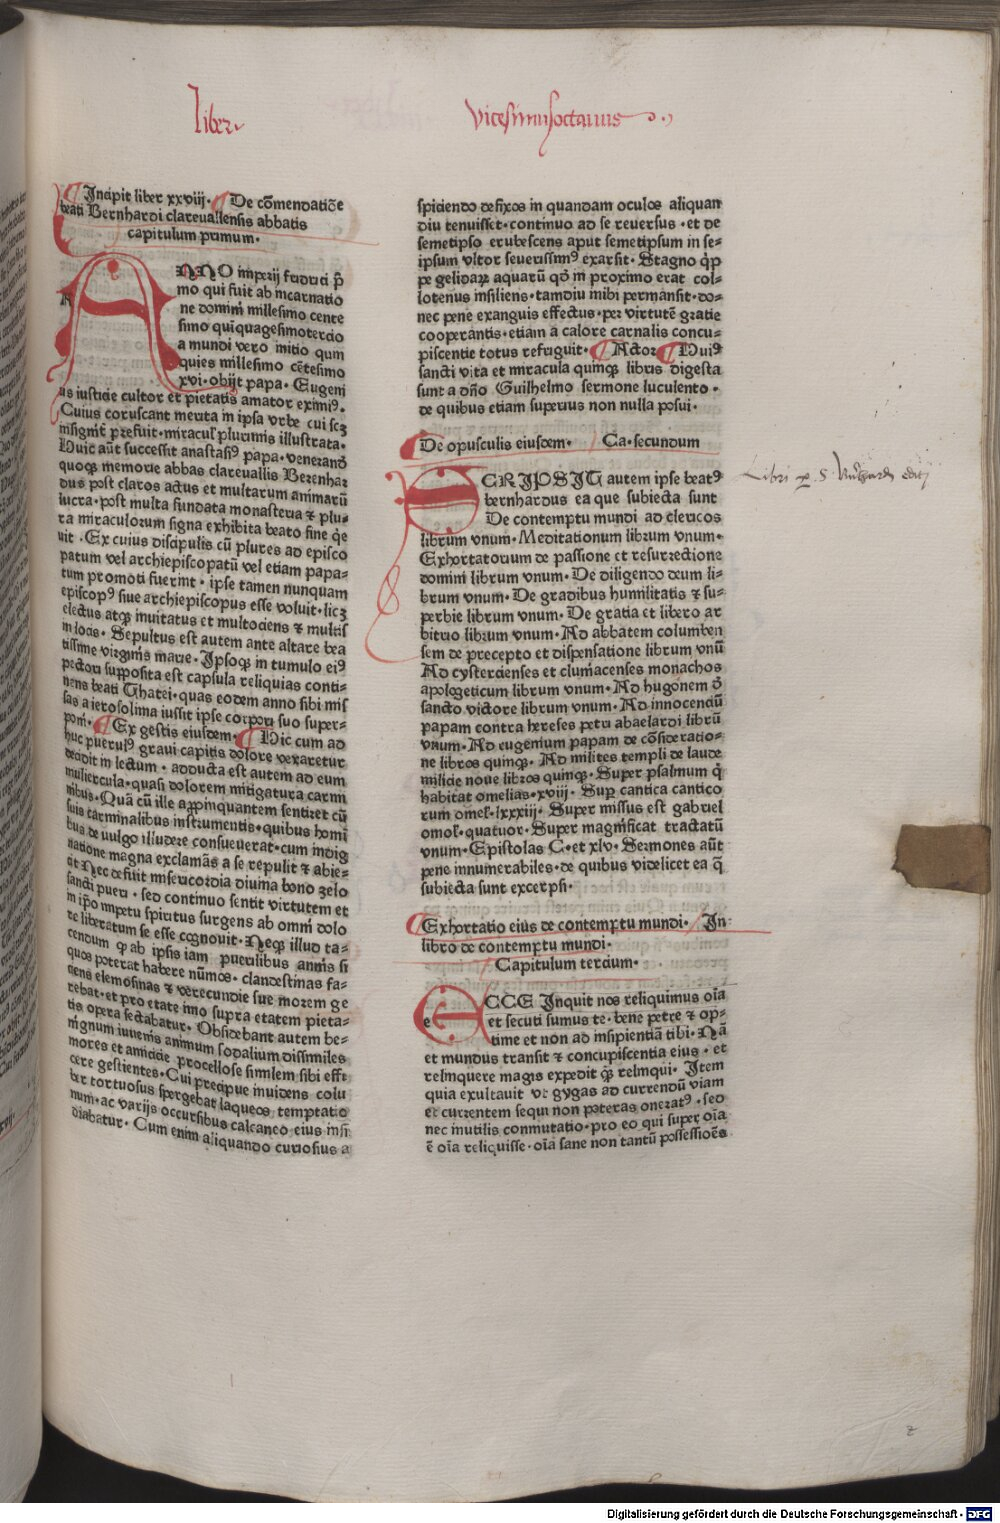 Liber
Vicesimusoctauus
Incipit liber xxviij. De cōmendatiōe
beati Bernhardi clareuallensis abbatis
capitulum primum.
ANNO imperij friderici p̄
mo qui fuit ab incarnatio
ne domini millesimo cente
simo quīquagesimotercio
a mundi vero initio qum
quies millesimo cētesimo
xvi. obijt papa. Eugeni
us iusticie cultor et pietatis amator eximiꝰ.
Cuius coruscant merita in ipsa vrbe cui scꝫ
insignit̄ prefuit. miraculꝭ plurimis illustrata.
Huic aūt successit anastasiꝰ papa. venerandꝰ
quoqꝫ memorie abbas clareuallis Berenhar
dus post claros actus et multarum animarū
lucra. post multa fundata monasteria ⁊ plu-
ra miraculorum signa exhibita beato fine q̄e
uit. Ex cuius discipulis cū plures ad episco
patum vel archiepiscopatū vel etiam papa-
tum promoti fuerint. ipse tamen nunquam
episcopꝰ siue archiepiscopus esse voluit. licꝫ
electus atqꝫ inuitatus et multociens ⁊ multis
in locis. Sepultus est autem ante altare bea
tissime virginis marie. Ipsoqꝫ in tumulo eiꝰ
pectori supposita est capsula reliquias conti-
nens beati Thatei. quas eodem anno sibi mis
sas a ierosolima iussit ipse corpori suo super-
poni. Ex gestis eiusdem. Hic cum ad
huc puerulꝰ graui capitis dolore vexaretur
decidit in lectum. adducta est autem ad eum
muliercula. quasi dolorem mitigatura carmi
nibus. Quā cū ille appinquantem sentiret cū
suis carminalibus instrumentis. quibus homī
bus de uulgo illudere consueuerat. cum indig
natione magna exclamās a se repulit ⁊ abie-
cit Nec defuit misericordia diuina bono zelo
sancti pueri. sed continuo sentit virtutem et
in ip̄o impetu spiritus surgens ab omni dolo
re liberatum se esse cognouit. Neqꝫ illud ta-
cendum ꝙ ab ipsis iam puerilibus annis si
quos poterat habere nūmos. clandestinas fa-
ciens elemosinas ⁊ verecundie sue morem ge
rebat. et pro etate imo supra etatem pieta-
tis opera sectabatur. Obsidebant autem be-
nignum iuuenis animum sodalium dissimiles
mores et amicicie procellose similem sibi effi
cere gestientes. Cui precipue inuidens colu
ber tortuosus spergebat laqueos temptatio
num. ac varijs occursibus calcaneo eius insi
diabatur. Cum enim aliquando curiosius a
spiciendo defixos in quandam oculos aliquan
diu tenuisset. continuo ad se reuersus. et de
semetipso erubescens aput semetipsum in se-
ipsum vltor seuerissimꝰ exarsit. Stagno q̄ꝓ
pe gelidaꝝ aquarū qd̓ in proximo erat col-
lotenus insiliens. tamdiu inibi permansit. do-
nec pene exanguis effectus. per virtutē gratie
cooperantis. etiam a calore carnalis concu-
piscentie totus refriguit. Actor Huiꝰ
sancti vita et miracula quinqꝫ libris digesta
sunt a dn̄o Guilhelmo sermone luculento.
de quibus etiam superius non nulla posui.
De opusculis eiusdem. Ca. secundum
SCRIPSIT autem ipse beatꝰ
bernhardus ea que subiecta sunt
De contemptu mundi ad clericos
librum vnum. Meditationum librum vnum.
Exhortatorium de passione et resurrectione
domini librum vnum. De diligendo deum li-
brum vnum. De gradibus humilitatis ⁊ su-
perbie librum vnum. De gratia et libero ar
bitrio librum vnum. Ad abbatem columben
sem de precepto et dispensatione librum vnū
Ad cystercienses et cluniacenses monachos
apologeticum librum vnum. Ad hugonem d̓
sancto victore librum vnum. Ad innocenciū
papam contra hereses petri abaelardi librū
vnum. Ad eugenium papam de cōsideratio-
ne libros quinqꝫ. Ad milites templi de laude
milicie noue libros quinqꝫ. Super psalmum q̄
habitat omelias. xviij. Suꝑ cantica cantico
rum omelꝭ. lxxxiij. Super missus est gabriel
omolꝭ. quatuor. Super magnificat tractatū
vnum. Epistolas C. et xlv. Sermones aūt
pene innumerabiles. de quibus videlicet ea q̄
subiecta sunt excerpsi.
Exhortatio eius de contemptu mundi. In
libro de contemptu mundi.
Capitulum tercium.
ECCE Inquit nos reliquimus oīa
et secuti sumus te. bene petre ⁊ op-
time et non ad insipientiā tibi. Nā
et mundus transit ⁊ concupiscentia eius. et
relinquere magis expedit qꝫ relinqui. Item
quia exultauit vt gygas ad currendū viam
et currentem sequi non poteras oneratꝰ. sed
nec inutilis conmutatio. pro eo qui super oīa
ē oīa reliquisse. oīa sane non tantū possessiōes
Libri ꝑ S. Bernhardū editj
Digitalisierung gefördert durch die Deutsche Forschungsgemeinschaft - DFG